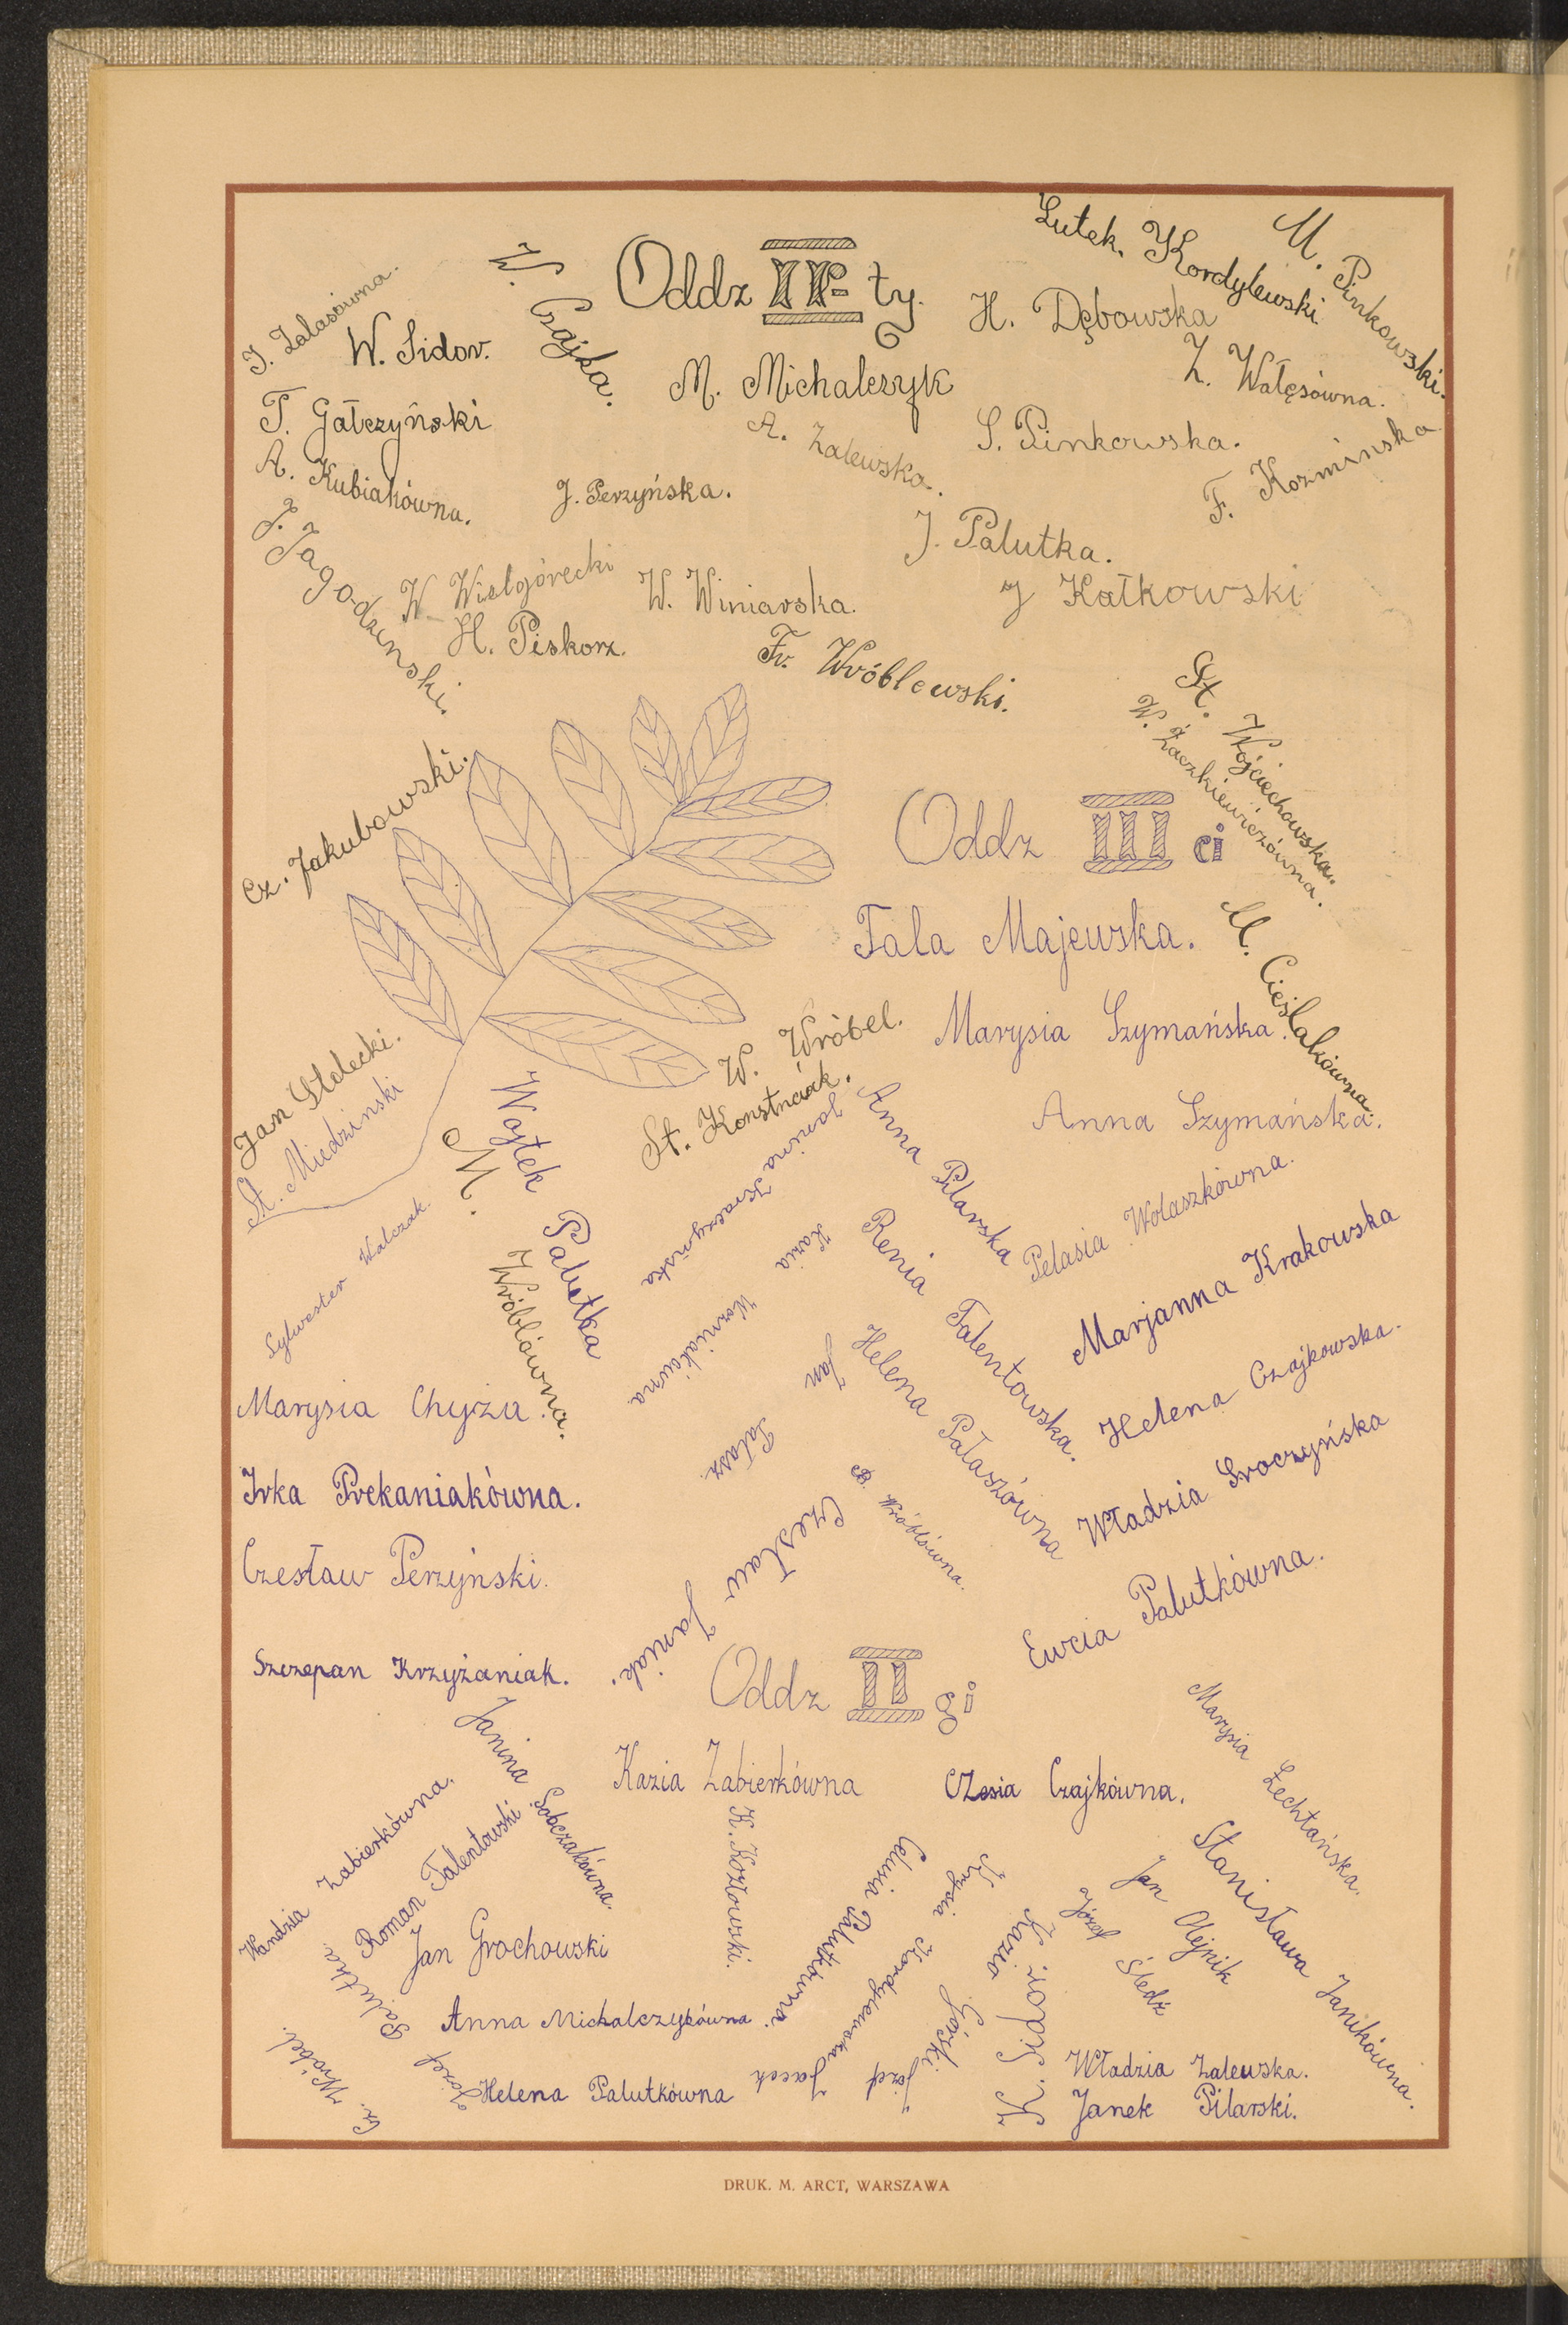 Lutek. Kordylewski
M. Pinkowski.
Oddz IV-ty.
W. Czajka.
J. Zalasówna.
W. Sidor.
H. Dębowska
Z. Wałęsówna.
M. Michalczyk
T. Gałczyński
A. Zalewska.
S. Pinkowska.
F. Kozminska
A. Kubiakówna.
J. Perzyńska.
J. Jagodzinski.
J. Palutka.
W. Wielgórecki
W. Winiarska.
J Kałkowski
H. Piskorz.
Fr. Wróblewski.
St. Wójciechowska.
W. Żaczkiewiczówna.
Cz. Jakubowski.
Oddz III ci
Tala Majewska.
M. Cieślakówna.
Marysia Szymańska.
W. Wróbel.
St. Konstnciak.
Jan Stolecki.
St. Miedzinski
Anna Szymańska.
Wojtek Palutka
M. Wróblówna.
Janina Kraczyńska
Anna Pilarska
Pelasia Wolaszkówna.
Sylwester Walczak.
Kazia Woźniakówna
Renia Talentowska.
Marjanna Krakowska
Jan Pałasz.
Helena Pałaszówna
Helena Czajkowska.
Marysia Chyża.
Irka Prekaniakówna.
B. Wróblówna.
Władzia Sroczyńska
Czesław Perzyński.
Czesław Janiak.
Ewcia Palutkówna.
Szczepan Krzyżaniak.
Oddz II gi
Janina Sobczakówna.
Kazia Zabierkówna
Czesia Czajkówna.
Marysia Łechtańska.
Wandzia Zabierkówna.
Roman Talentowski
K. Kozłowski.
Celusia Palutkówna.
Krysia Kordylewska
Kazio Górski
Jan Olejnik
Stanisława Janikówna.
Józef Śledź
Jan Grochowski
Józef Palutka
K. Sidor.
Anna Michalczykówna.
Cz. Wróbel.
Helena Palutkówna
Jacek
Józef
Władzia Zalewska.
Janek Pilarski.
DRUK. M. ARCT, WARSZAWA